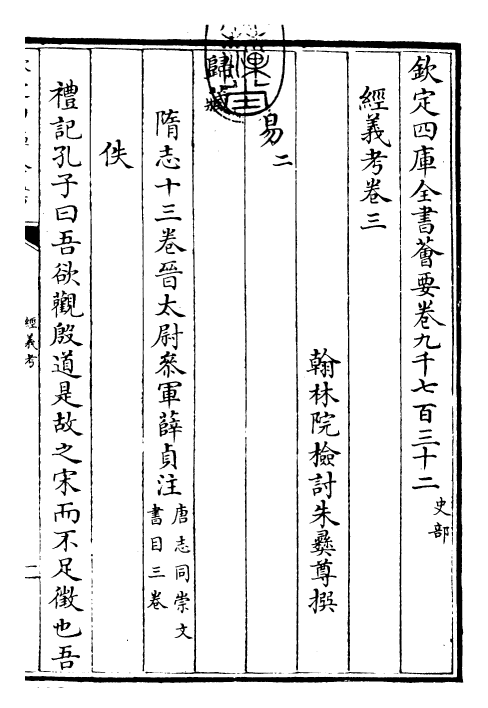 欽定四庫全書薈要卷九千七百三十二史部
經義考卷三
翰林院檢討朱彝尊撰
易二
歸藏
隋志十三卷晉太尉叅軍薛貞注唐志同崇文
書目三卷
佚
禮記孔子曰吾欲觀殷道是故之宋而不足徵也吾
經義考